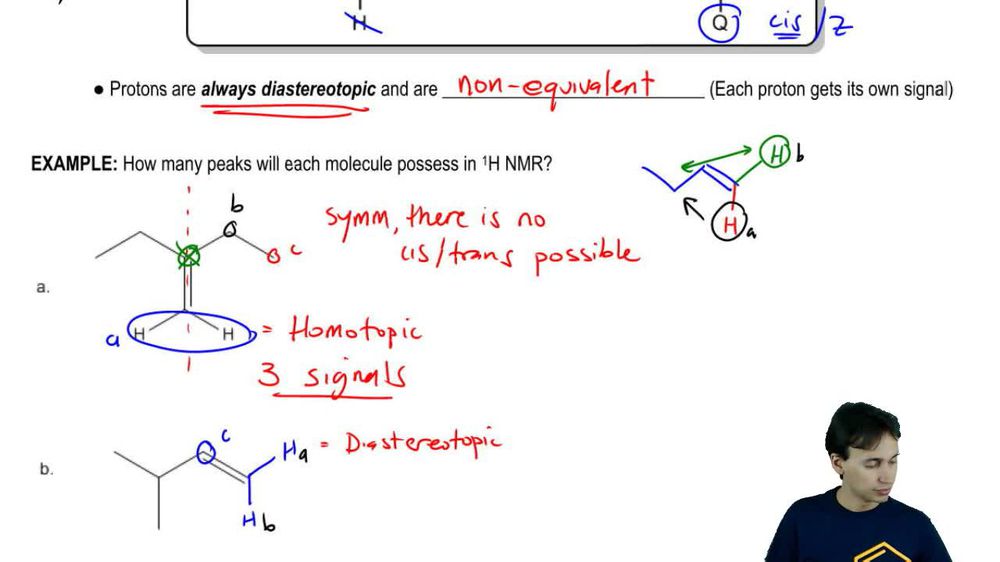 H
Q cis/Z
● Protons are always diastereotopic and are non-equivalent (Each proton gets its own signal)
EXAMPLE: How many peaks will each molecule possess in ¹H NMR?
H b
H a
b
c
symm, there is no
cis/trans possible
a.
a H H = Homotopic
3 signals
b.
c
Ha = Diastereotopic
Hb